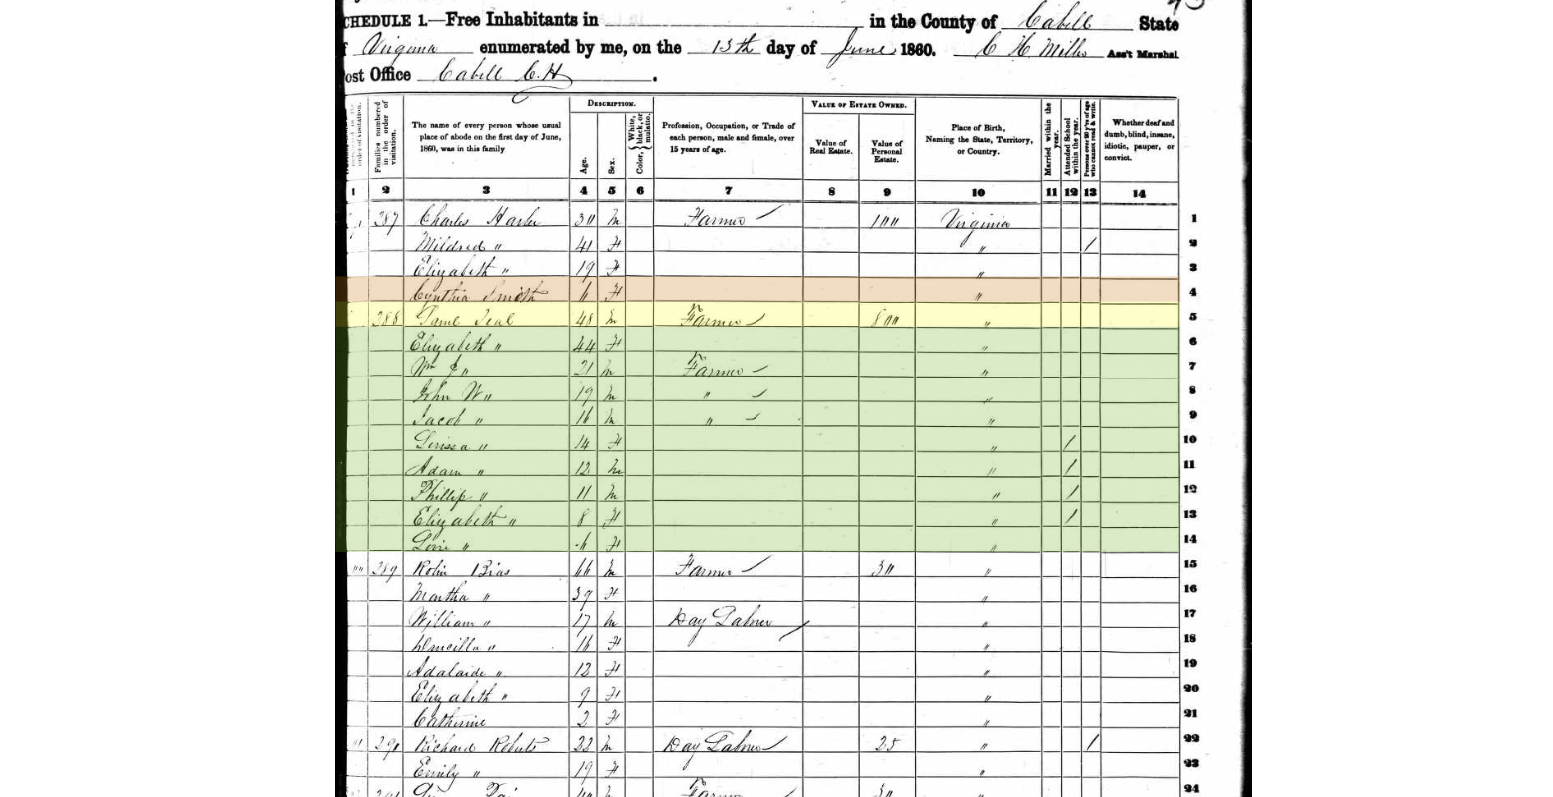 CHEDULE 1.—Free Inhabitants in in the County of Cabell State
Virginia enumerated by me, on the 13th day of June 1860. C H Mills Ass't Marshal
ost Office Cabell C.H.
Families numbered in the order of visitation.
The name of every person whose usual place of abode on the first day of June, 1860, was in this family
DESCRIPTION.
Age.
Sex.
Color, White, black, or mulatto.
Profession, Occupation, or Trade of each person, male and female, over 15 years of age.
VALUE OF ESTATE OWNED.
Value of Real Estate.
Value of Personal Estate.
Place of Birth, Naming the State, Territory, or Country.
Married within the year.
Attended School within the year.
Persons over 20 y'rs of age who cannot read & write.
Whether deaf and dumb, blind, insane, idiotic, pauper, or convict.
1 2 3 4 5 6 7 8 9 10 11 12 13 14
287 Charles 30 m Farmer 100 Virginia 1
Mildred " 41 f " / 2
Elizabeth " 19 f " 3
Cynthia Smith 6 f " 4
288 Saml Seal 48 m Farmer 800 " 5
Elizabeth " 44 f " 6
Wm J " 21 m Farmer " 7
John W " 19 m " " 8
Jacob " 16 m " " 9
" 14 f " / 10
Adam " 12 m " / 11
Phillip " 11 m " / 12
Elizabeth " 8 f " / 13
" 6 f " 14
289 Robin Bias 66 m Farmer 30 " 15
Martha " 39 f " 16
William " 17 m Day Labner " 17
" 16 f " 18
Adalaide " 12 f " 19
Elizabeth " 9 f " 20
Catherine 2 f " 21
290 Richard Roberts 22 m Day Labner 25 " / 22
Emily " 19 f " 23
Farmer 24